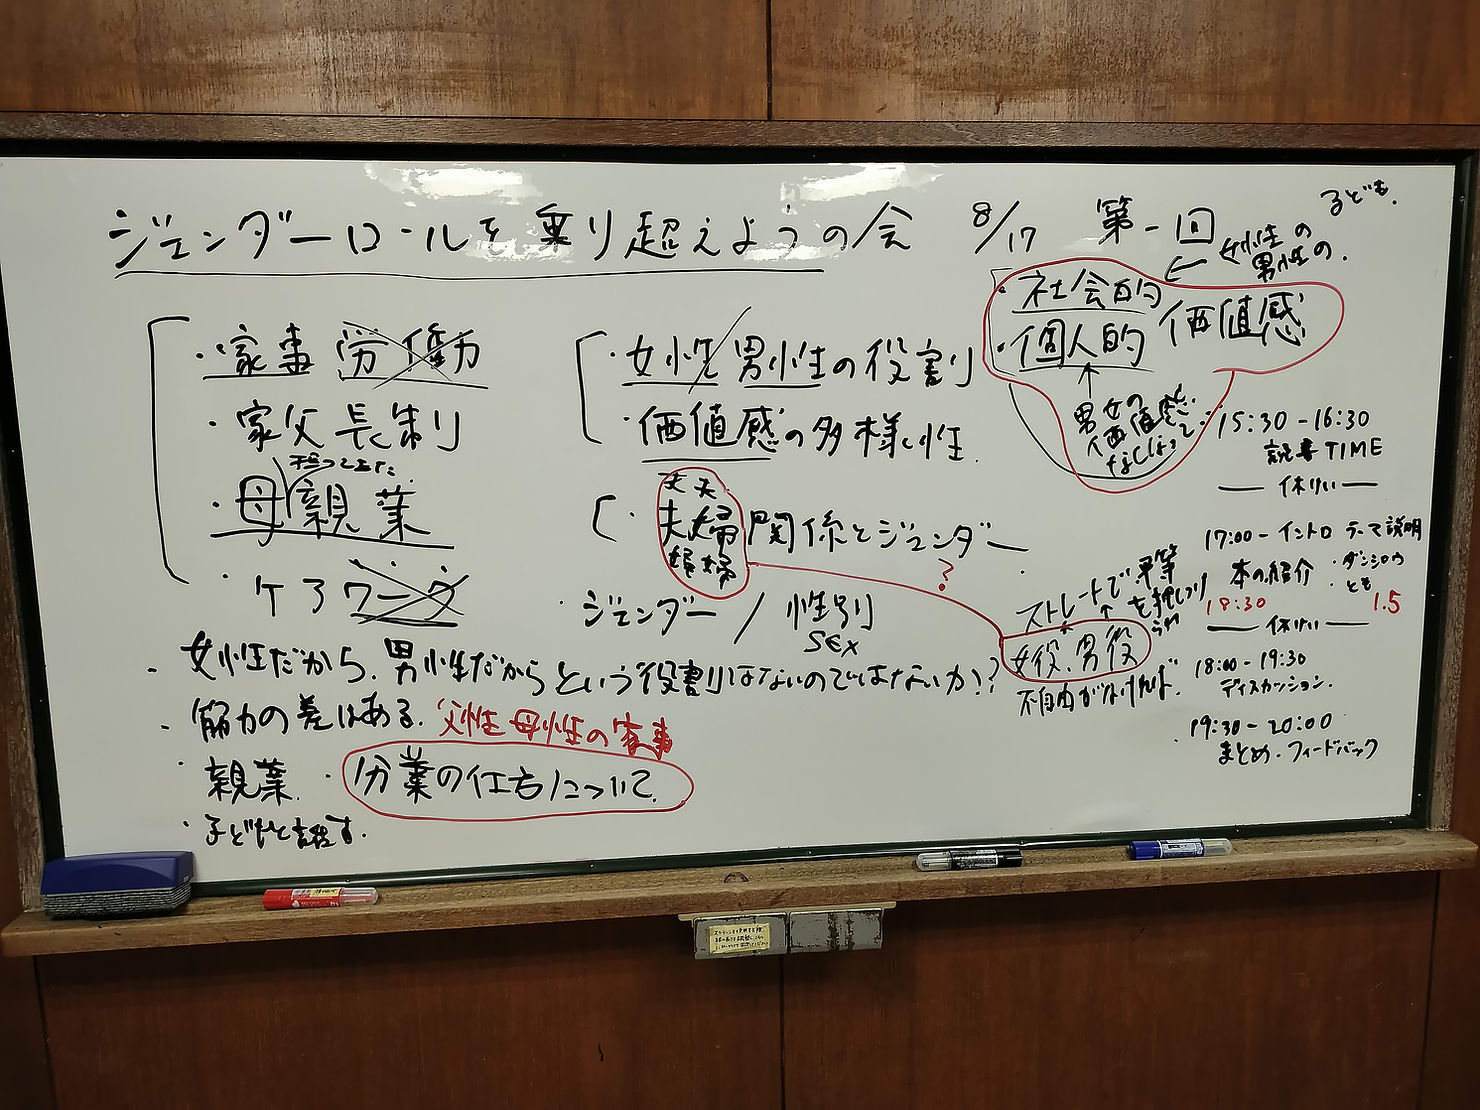 ジェンダーロールを乗り超えようの会 8/17 第一回
子ども.
女性の
男性の.
・社会的
・個人的 価値感
男女の
価値感
なくしょって
・家事 労働
・家父長制
・母親業
・ケアワーク
・女性/男性の役割
・価値感の多様性
・夫夫
夫婦 関係とジェンダー
婦婦
?
・ジェンダー / 性別
SEX
ストレートで平等
女役、男役
不自由がなければ.
- 女性だから、男性だからという役割はないのではないか??
- 筋力の差はある. 父性 母性の家事
・親業 ・分業の仕方について.
・子どもと話す.
15:30 - 16:30
読書TIME
— 休けい —
17:00 - イントロ テーマ説明
本の紹介 ・ダンシロウ
・とも
18:30 1.5
— 休けい —
18:00 - 19:30
ディスカッション.
19:30 - 20:00
まとめ・フィードバック